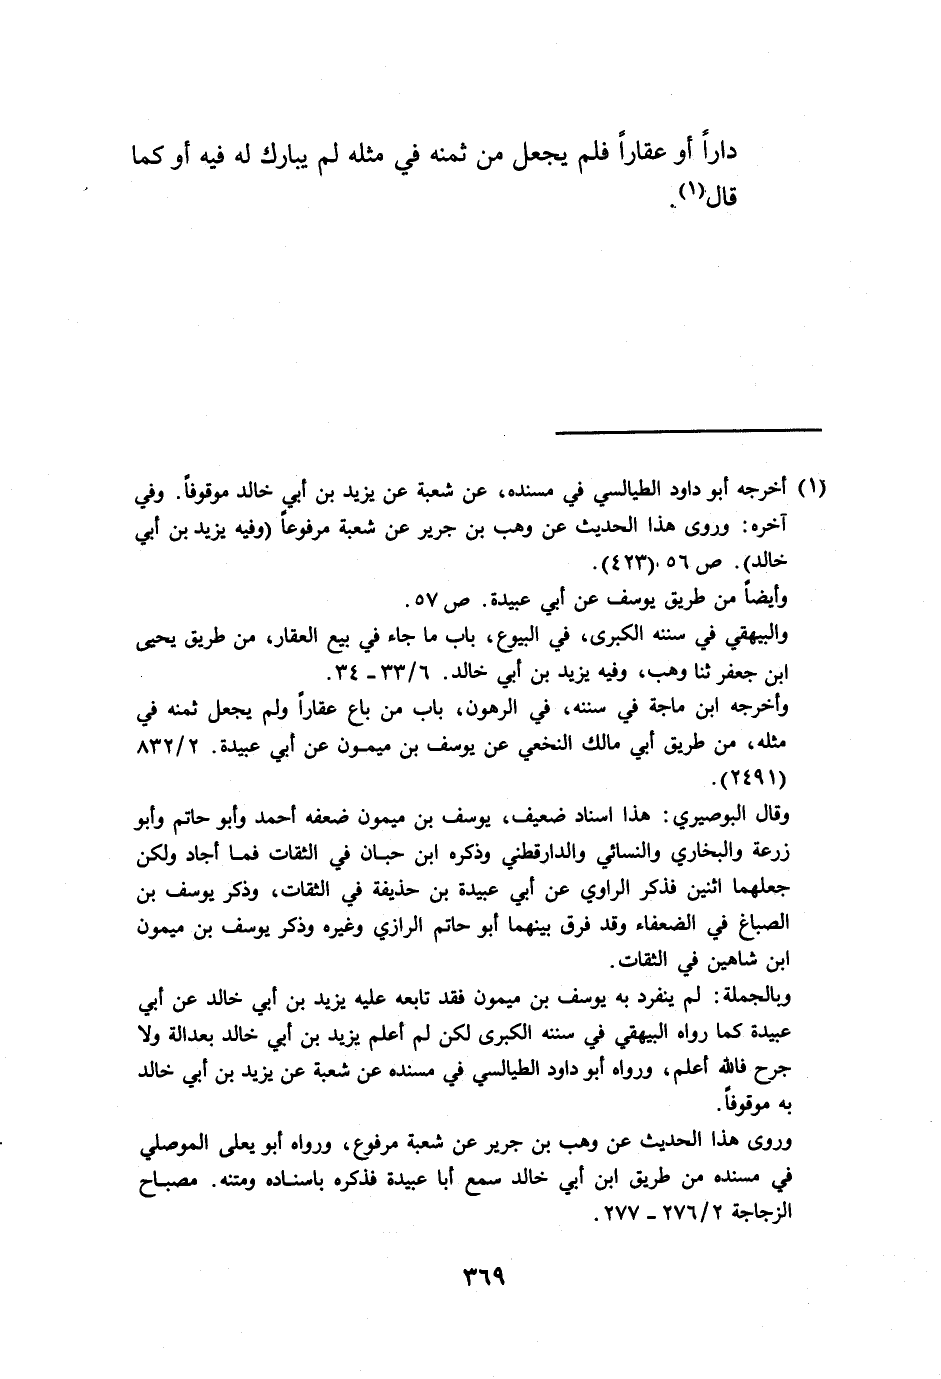 داراً أو عقاراً فلم يجعل من ثمنه في مثله لم يبارك له فيه أو كما
قال(١).
(١) أخرجه أبو داود الطيالسي في مسنده، عن شعبة عن يزيد بن أبي خالد موقوفاً. وفي
آخره: وروى هذا الحديث عن وهب بن جرير عن شعبة مرفوعاً (وفيه يزيد بن أبي
خالد). ص ٥٦ (٤٢٣).
وأيضاً من طريق يوسف عن أبي عبيدة. ص ٥٧.
والبيهقي في سننه الكبرى، في البيوع، باب ما جاء في بيع العقار، من طريق يحيى
ابن جعفر ثنا وهب، وفيه يزيد بن أبي خالد. ٣٣/٦ ـ ٣٤.
وأخرجه ابن ماجة في سننه، في الرهون، باب من باع عقاراً ولم يجعل ثمنه في
مثله، من طريق أبي مالك النخعي عن يوسف بن ميمون عن أبي عبيدة. ٨٣٢/٢
(٢٤٩١).
وقال البوصيري: هذا اسناد ضعيف، يوسف بن ميمون ضعفه أحمد وأبو حاتم وأبو
زرعة والبخاري والنسائي والدارقطني وذكره ابن حبان في الثقات فما أجاد ولكن
جعلهما اثنين فذكر الراوي عن أبي عبيدة بن حذيفة في الثقات، وذكر يوسف بن
الصباغ في الضعفاء وقد فرق بينهما أبو حاتم الرازي وغيره وذكر يوسف بن ميمون
ابن شاهين في الثقات.
وبالجملة: لم ينفرد به يوسف بن ميمون فقد تابعه عليه يزيد بن أبي خالد عن أبي
عبيدة كما رواه البيهقي في سننه الكبرى لكن لم أعلم يزيد بن أبي خالد بعدالة ولا
جرح فالله أعلم، ورواه أبو داود الطيالسي في مسنده عن شعبة عن يزيد بن أبي خالد
به موقوفاً.
وروى هذا الحديث عن وهب بن جرير عن شعبة مرفوع، ورواه أبو يعلى الموصلي
في مسنده من طريق ابن أبي خالد سمع أبا عبيدة فذكره باسناده ومتنه. مصباح
الزجاجة ٢٧٦/٢ ـ ٢٧٧.
٣٦٩